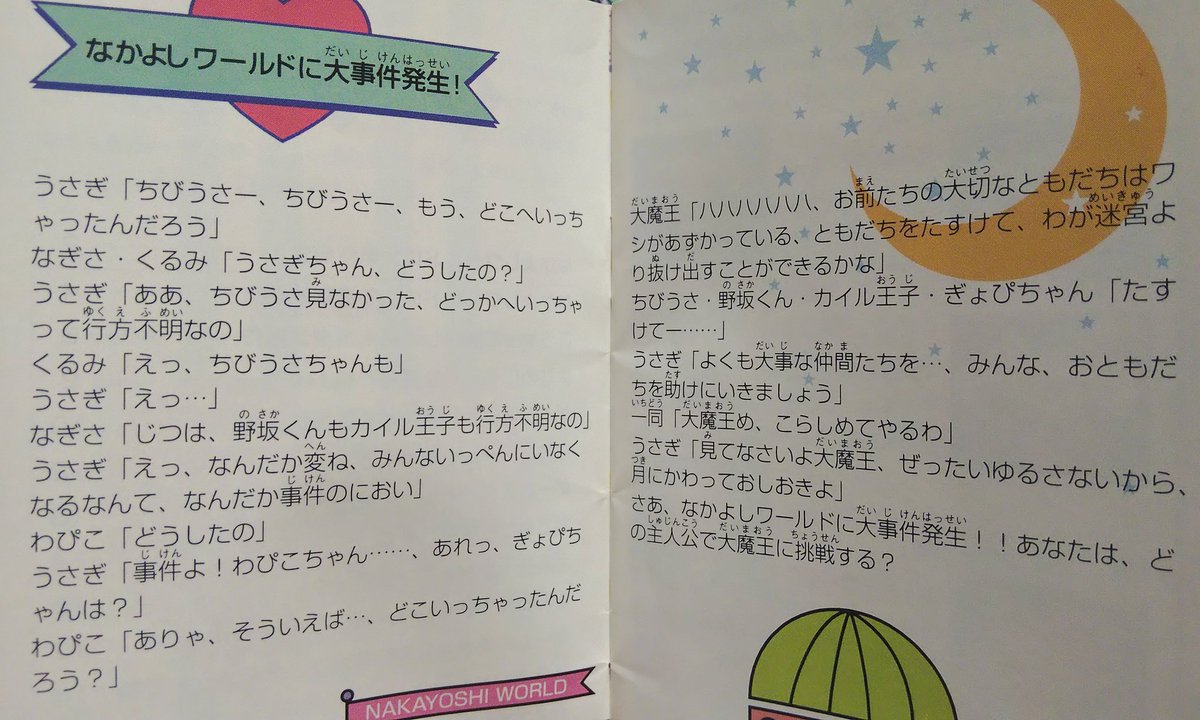 なかよしワールドに大事件発生!
うさぎ「ちびうさー、ちびうさー、もう、どこへいっち
ゃったんだろう」
なぎさ・くるみ「うさぎちゃん、どうしたの？」
うさぎ「ああ、ちびうさ見なかった、どっかへいっちゃ
って行方不明なの」
くるみ「えっ、ちびうさちゃんも」
うさぎ「えっ…」
なぎさ「じつは、野坂くんもカイル王子も行方不明なの」
うさぎ「えっ、なんだか変ね、みんないっぺんにいなく
なるなんて、なんだか事件のにおい」
わぴこ「どうしたの」
うさぎ「事件よ！わぴこちゃん……、あれっ、ぎょぴち
ゃんは？」
わぴこ「ありゃ、そういえば…、どこいっちゃったんだ
ろう？」
NAKAYOSHI WORLD
大魔王「ハハハハハハ、お前たちの大切なともだちはワ
シがあずかっている、ともだちをたすけて、わが迷宮よ
り抜け出すことができるかな」
ちびうさ・野坂くん・カイル王子・ぎょぴちゃん「たす
けてー……」
うさぎ「よくも大事な仲間たちを…、みんな、おともだ
ちを助けにいきましょう」
一同「大魔王め、こらしめてやるわ」
うさぎ「見てなさいよ大魔王、ぜったいゆるさないから、
月にかわっておしおきよ」
さあ、なかよしワールドに大事件発生！！あなたは、ど
の主人公で大魔王に挑戦する？